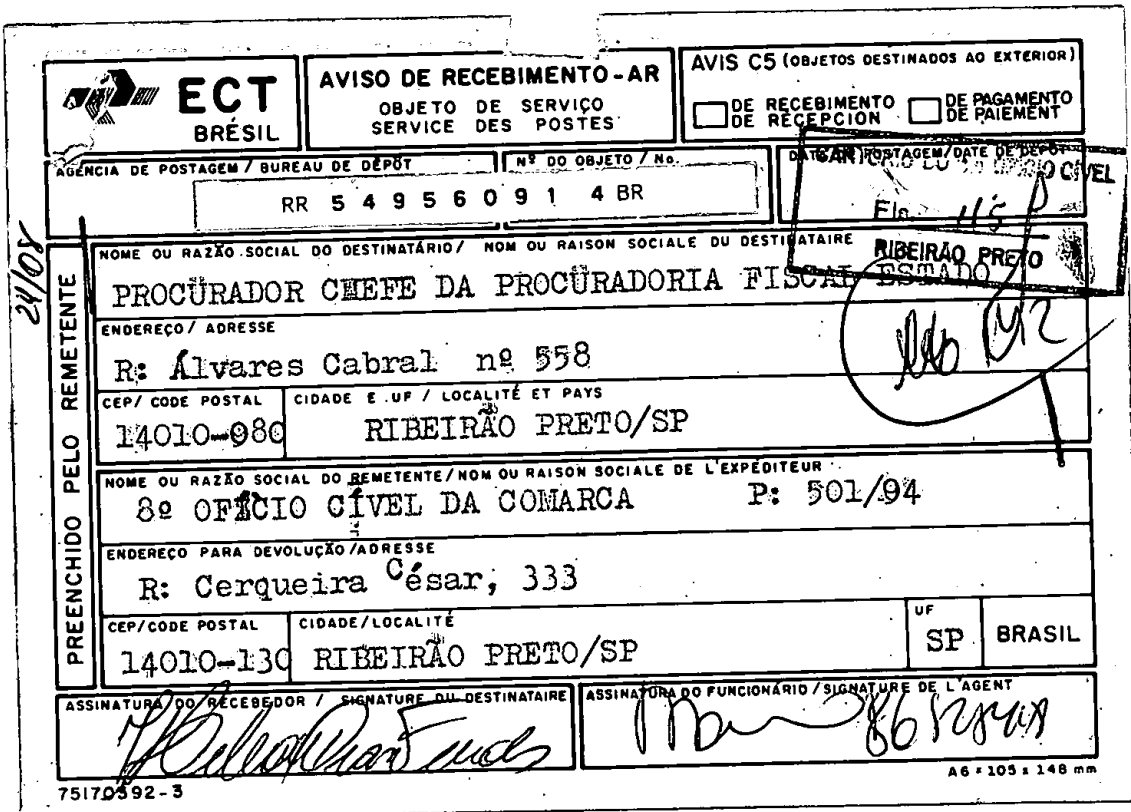 ECT
BRÉSIL
AVISO DE RECEBIMENTO-AR
OBJETO DE SERVIÇO
SERVICE DES POSTES
AVIS C5 (OBJETOS DESTINADOS AO EXTERIOR)
DE RECEBIMENTO
DE RECEPCION
DE PAGAMENTO
DE PAIEMENT
AGÊNCIA DE POSTAGEM / BUREAU DE DÉPÔT
Nº DO OBJETO / No.
POSTAGEM/DATE DE DEPOT
RR 5 4 9 5 6 0 9 1 4 BR
CÍVEL
Fls. 115
RIBEIRÃO PRETO
24/08
PREENCHIDO PELO REMETENTE
NOME OU RAZÃO SOCIAL DO DESTINATÁRIO / NOM OU RAISON SOCIALE DU DESTINATAIRE
PROCÜRADOR CHEFE DA PROCÜRADORIA FISCAL ESTADO
ENDEREÇO / ADRESSE
R: Álvares Cabral nº 558
CEP/ CODE POSTAL
CIDADE E UF / LOCALITÉ ET PAYS
14010-080
RIBEIRÃO PRETO/SP
NOME OU RAZÃO SOCIAL DO REMETENTE/NOM OU RAISON SOCIALE DE L'EXPÉDITEUR
8º OFÍCIO CÍVEL DA COMARCA P: 501/94
ENDEREÇO PARA DEVOLUÇÃO/ADRESSE
R: Cerqueira César, 333
CEP/CODE POSTAL
CIDADE/LOCALITÉ
UF
14010-130
RIBEIRÃO PRETO/SP
SP
BRASIL
ASSINATURA DO RECEBEDOR / SIGNATURE DU DESTINATAIRE
ASSINATURA DO FUNCIONÁRIO / SIGNATURE DE L'AGENT
75170592-3
A6 = 105 x 148 mm